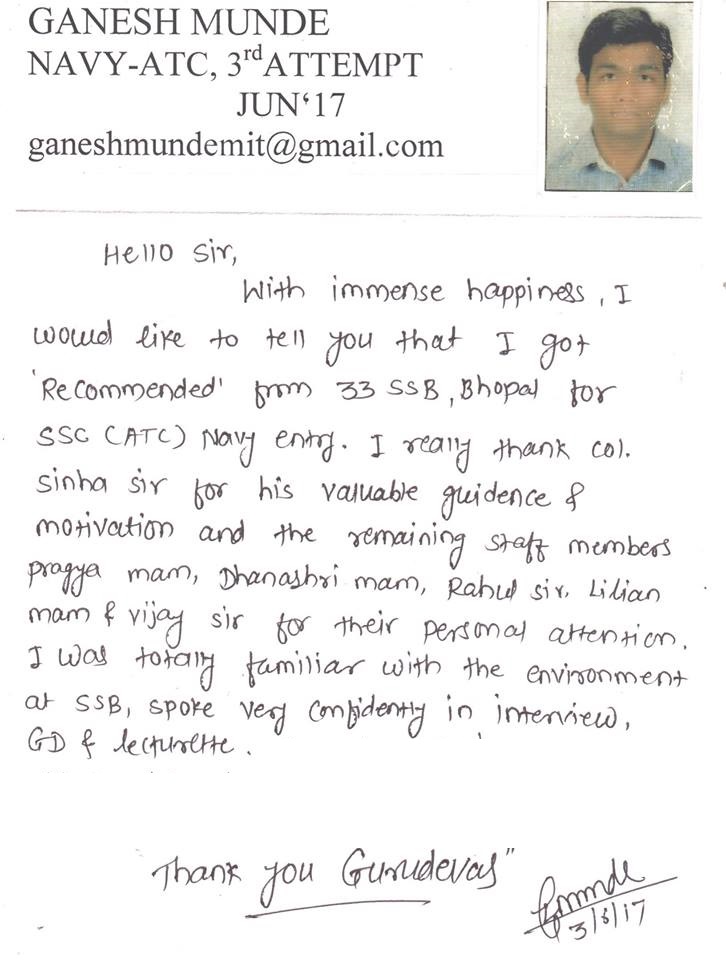 GANESH MUNDE
NAVY-ATC, 3rd ATTEMPT
JUN'17
ganeshmundemit@gmail.com
Hello Sir,
With immense happiness, I
would like to tell you that I got
'Recommended' from 33 SSB, Bhopal for
SSC (ATC) Navy entry. I really thank col.
Sinha sir for his valuable guidence &
motivation and the remaining staff members
pragya mam, Dhanashri mam, Rahul sir, Lilian
mam & vijay sir for their personal attention.
I was totally familiar with the environment
at SSB, spoke very confidently in interview,
GD & lecturette.
Thank you Gurudevas"
3/6/17